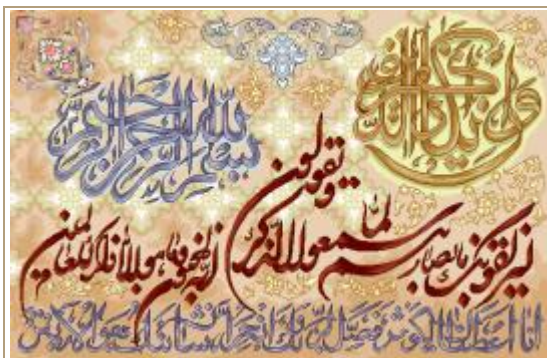 بسم الله الرحمن الرحيم
وان يكاد الذين كفروا
ليزلقونك بابصارهم لما سمعوا الذكر
ويقولون
انه لمجنون وما هو الا ذكر للعالمين
انا اعطيناك الكوثر فصل لربك وانحر ان شانئك هو الابتر